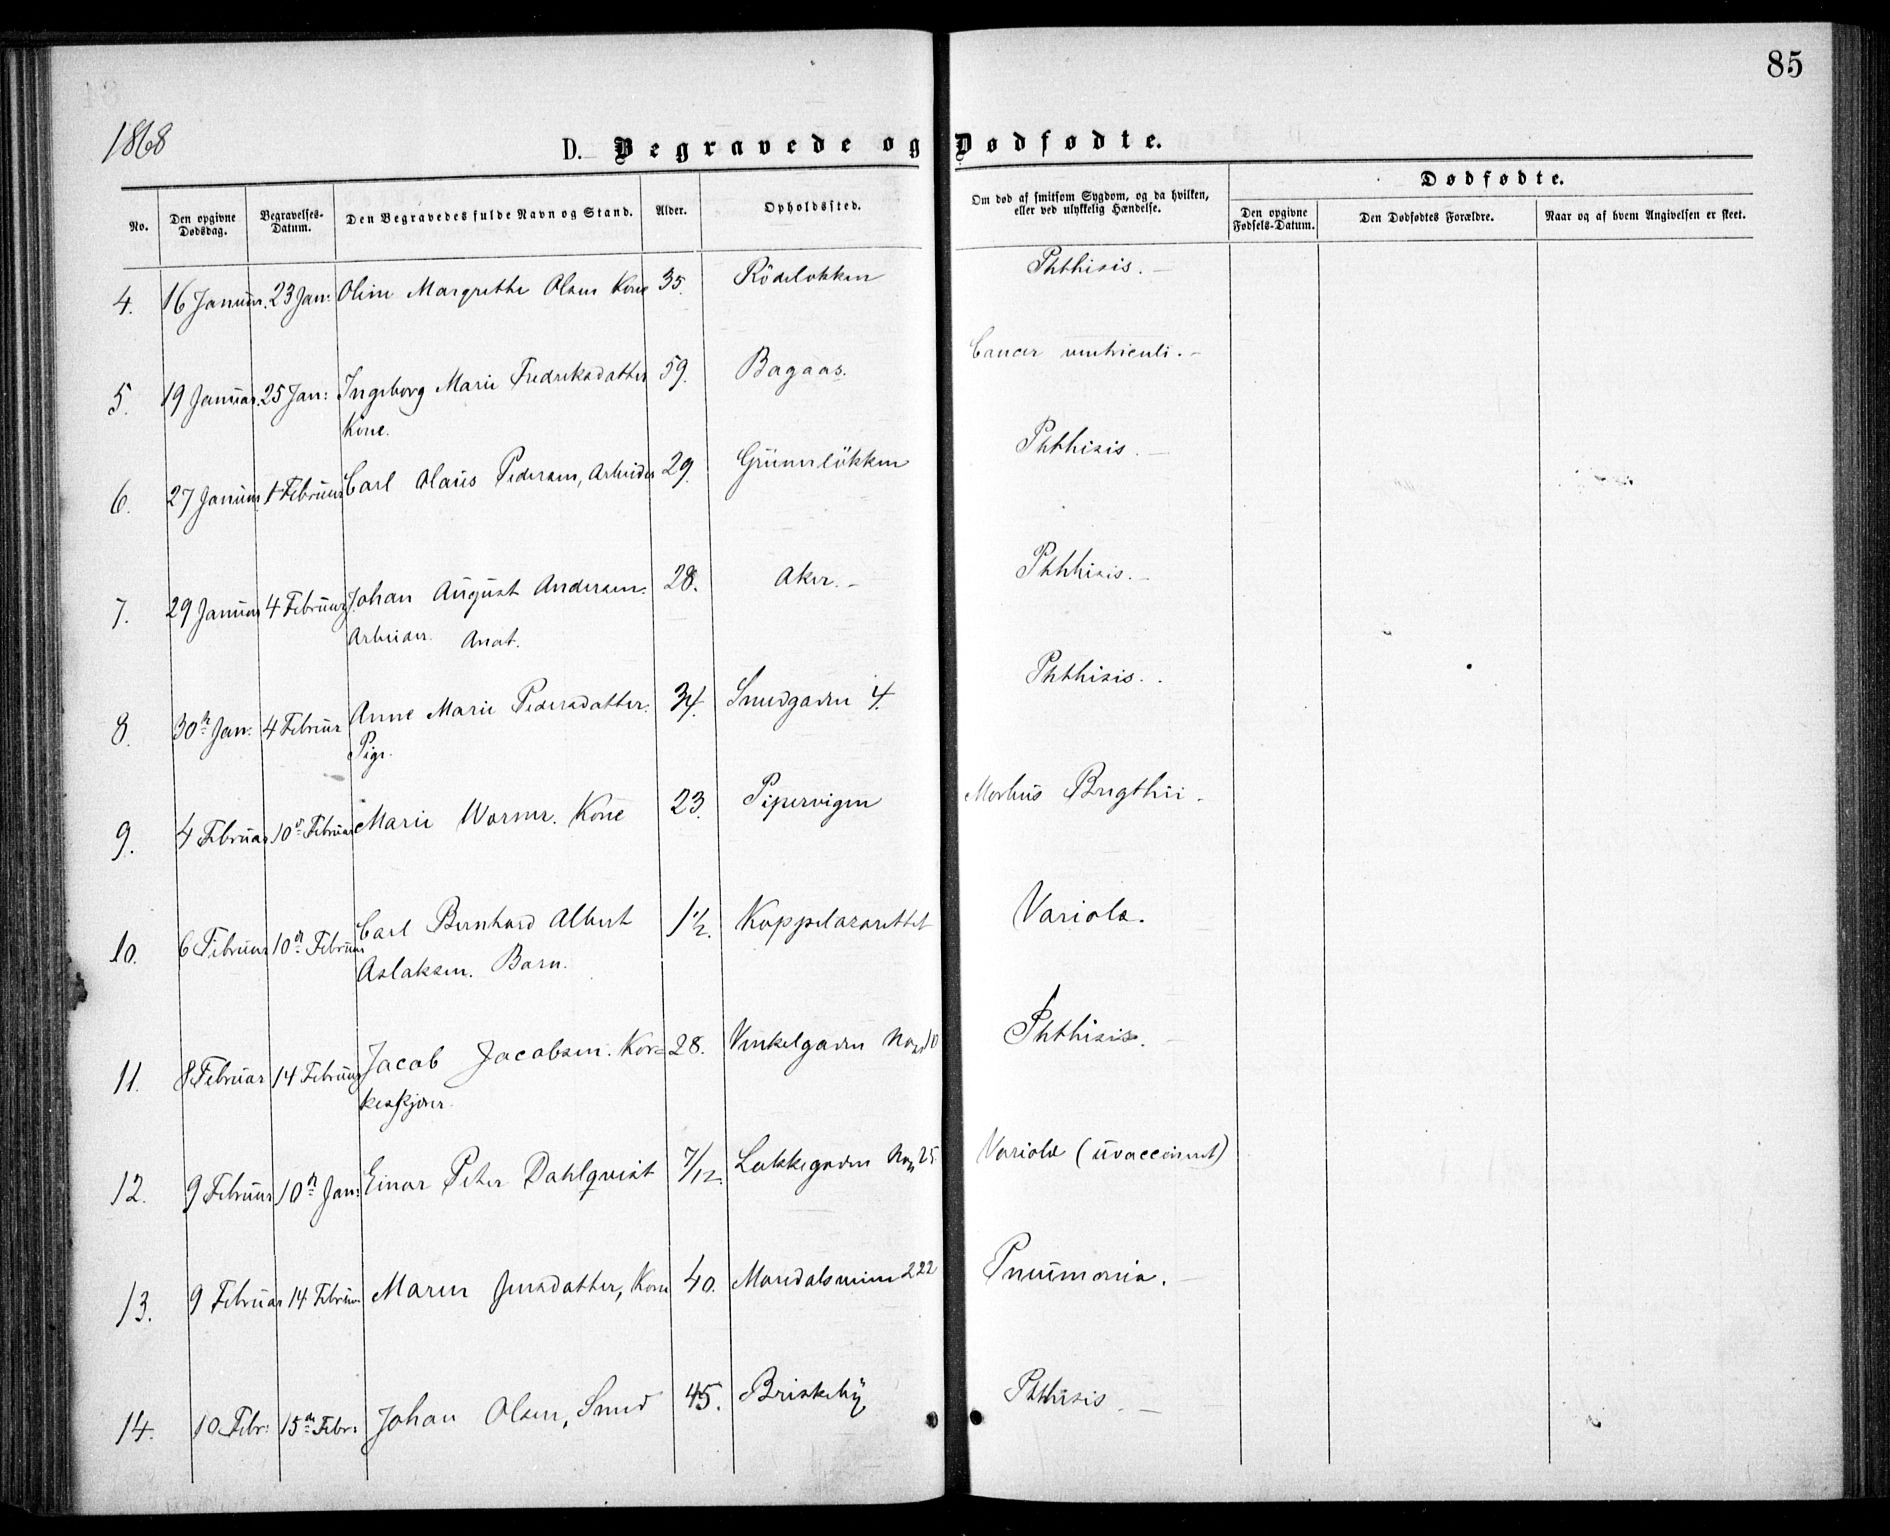 85
1868
D. Begravede og Dødfødte.
No. Den opgivne Dødsdag. Begravelses-Datum. Den Begravedes fulde Navn og Stand. Alder. Opholdssted. Om død af smitsom Sygdom, og da hvilken, eller ved ulykkelig Hændelse. Dødfødte.
Den opgivne Fødsels-Datum. Den Dødfødtes Forældre. Naar og af hvem Angivelsen er skeet.
4. 16 Januar. 23 Jan: Oline Margrethe Olsen Kone 35. Rödelokken Phthisis. -
5. 19 Januar. 25 Jan: Ingeborg Marie Fredriksdatter 59. Bagaas. Cancer ventriculi. -
Kone.
6. 27 Januar 1 Februar Carl Olaus Pedersen, Arbeider 29. Grünerlökken Phthisis. -
7. 29 Januar 4 Februar Johan August Andersen. 28. Aker. - Phthisis. -
Arbeider. Anat.
8. 30te Jan. 4 Februar Anne Marie Pedersdatter. 34. Smedgaden 4. Phthisis. .
Pige.
9. 4 Februar 10de Februar Marie Worner. Kone 23. Pipervigen Morbus Brigthii -
10. 6 Februar 10de Februar Carl Bernhard Albert 1½. Koppelazarettet Variola.
Aslaksen. Barn.
11. 8 Februar 14 Februar Jacob Jacobsen. Kor= 28. Vinkelgaden No 10 Phthisis. -
keskjærer.
12. 9 Februar 10de Jan: Einar Peter Dahlqvist 7/12. Lakkegaden No 25 Variola (uvaccineret)
13. 9 Februar 14 Februar Maren Jensdatter, Kone 40. Maridalsveien 222 Pneumonia. -
14. 10 Febr: 15de Febr: Johan Olsen, Smed 45. Briskeby Phthisis. -